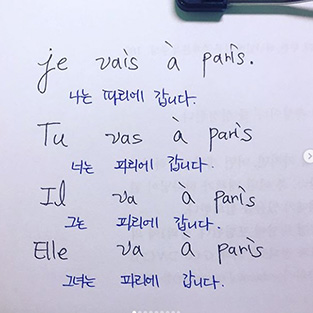 je vais à paris.
나는 파리에 갑니다.
Tu vas à paris
너는 파리에 갑니다.
Il va à paris
그는 파리에 갑니다.
Elle va à paris
그녀는 파리에 갑니다.